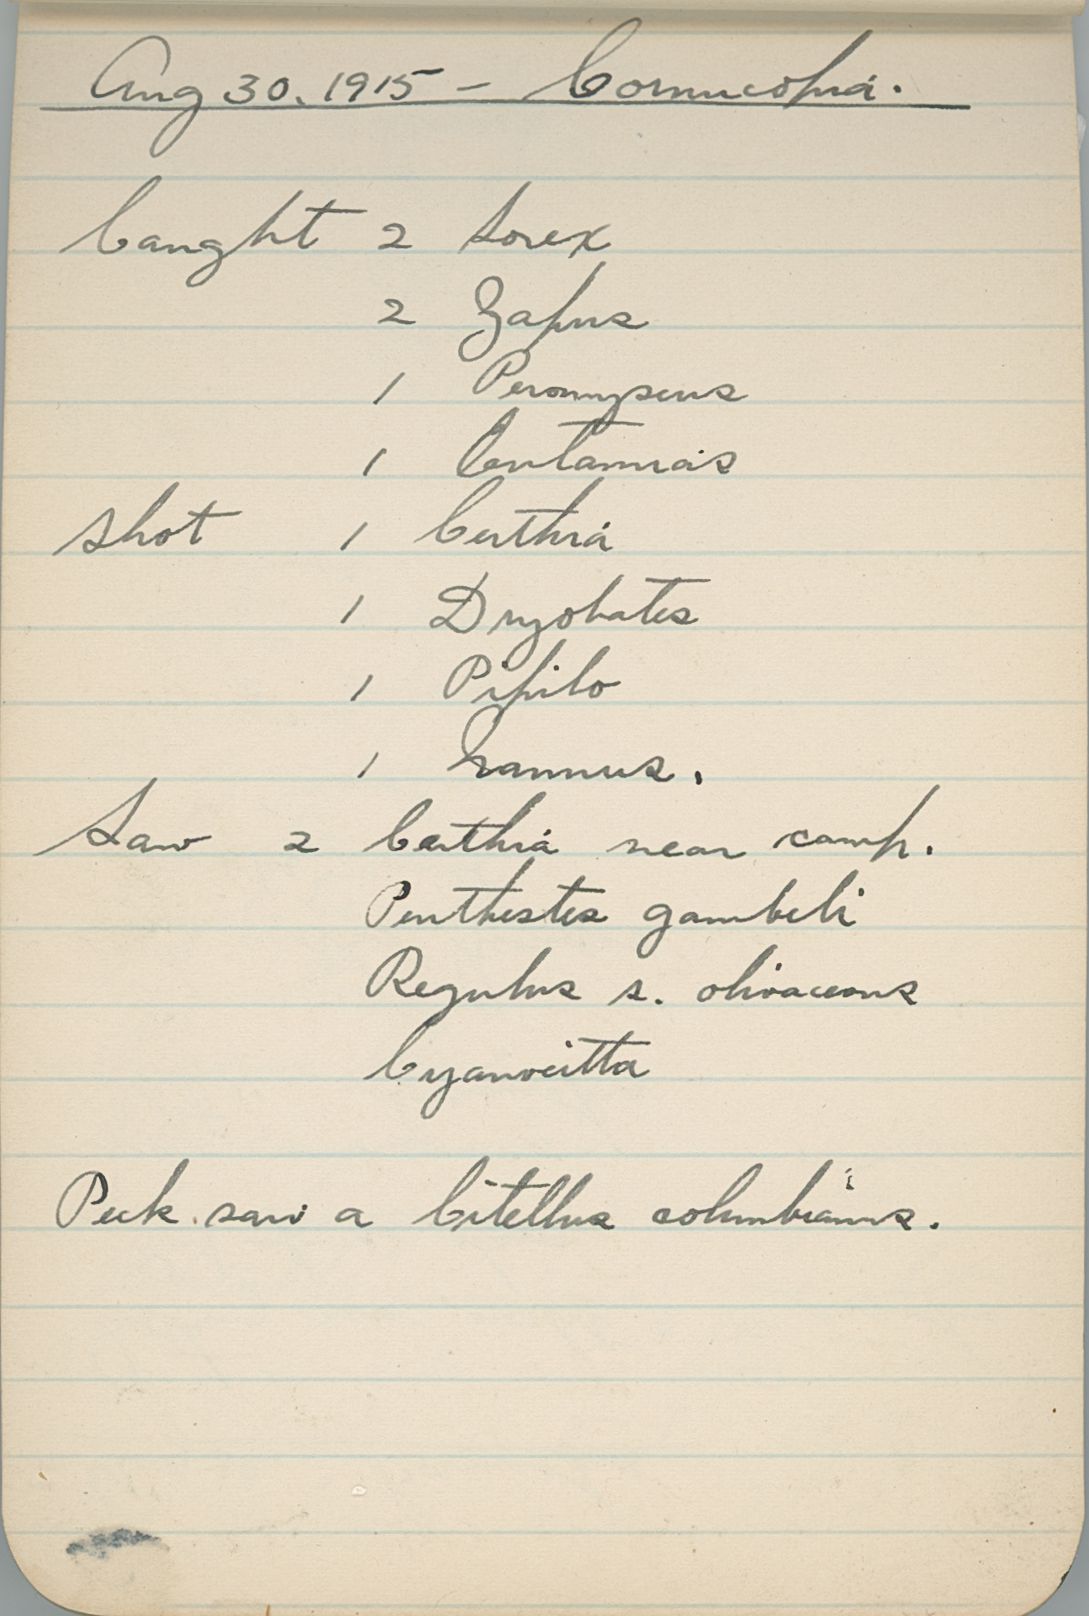 Aug 30. 1915 - Cornucopia.
Caught 2 Sorex
2 Zapus
1 Peromyscus
1 Eutamias
Shot 1 Certhia
1 Dryobates
1 Pipilo
1 Lanius.
Saw 2 Certhia near camp.
Penthestes gambeli
Regulus s. olivaceous
Cyanocitta
Peck saw a Citellus columbianus.